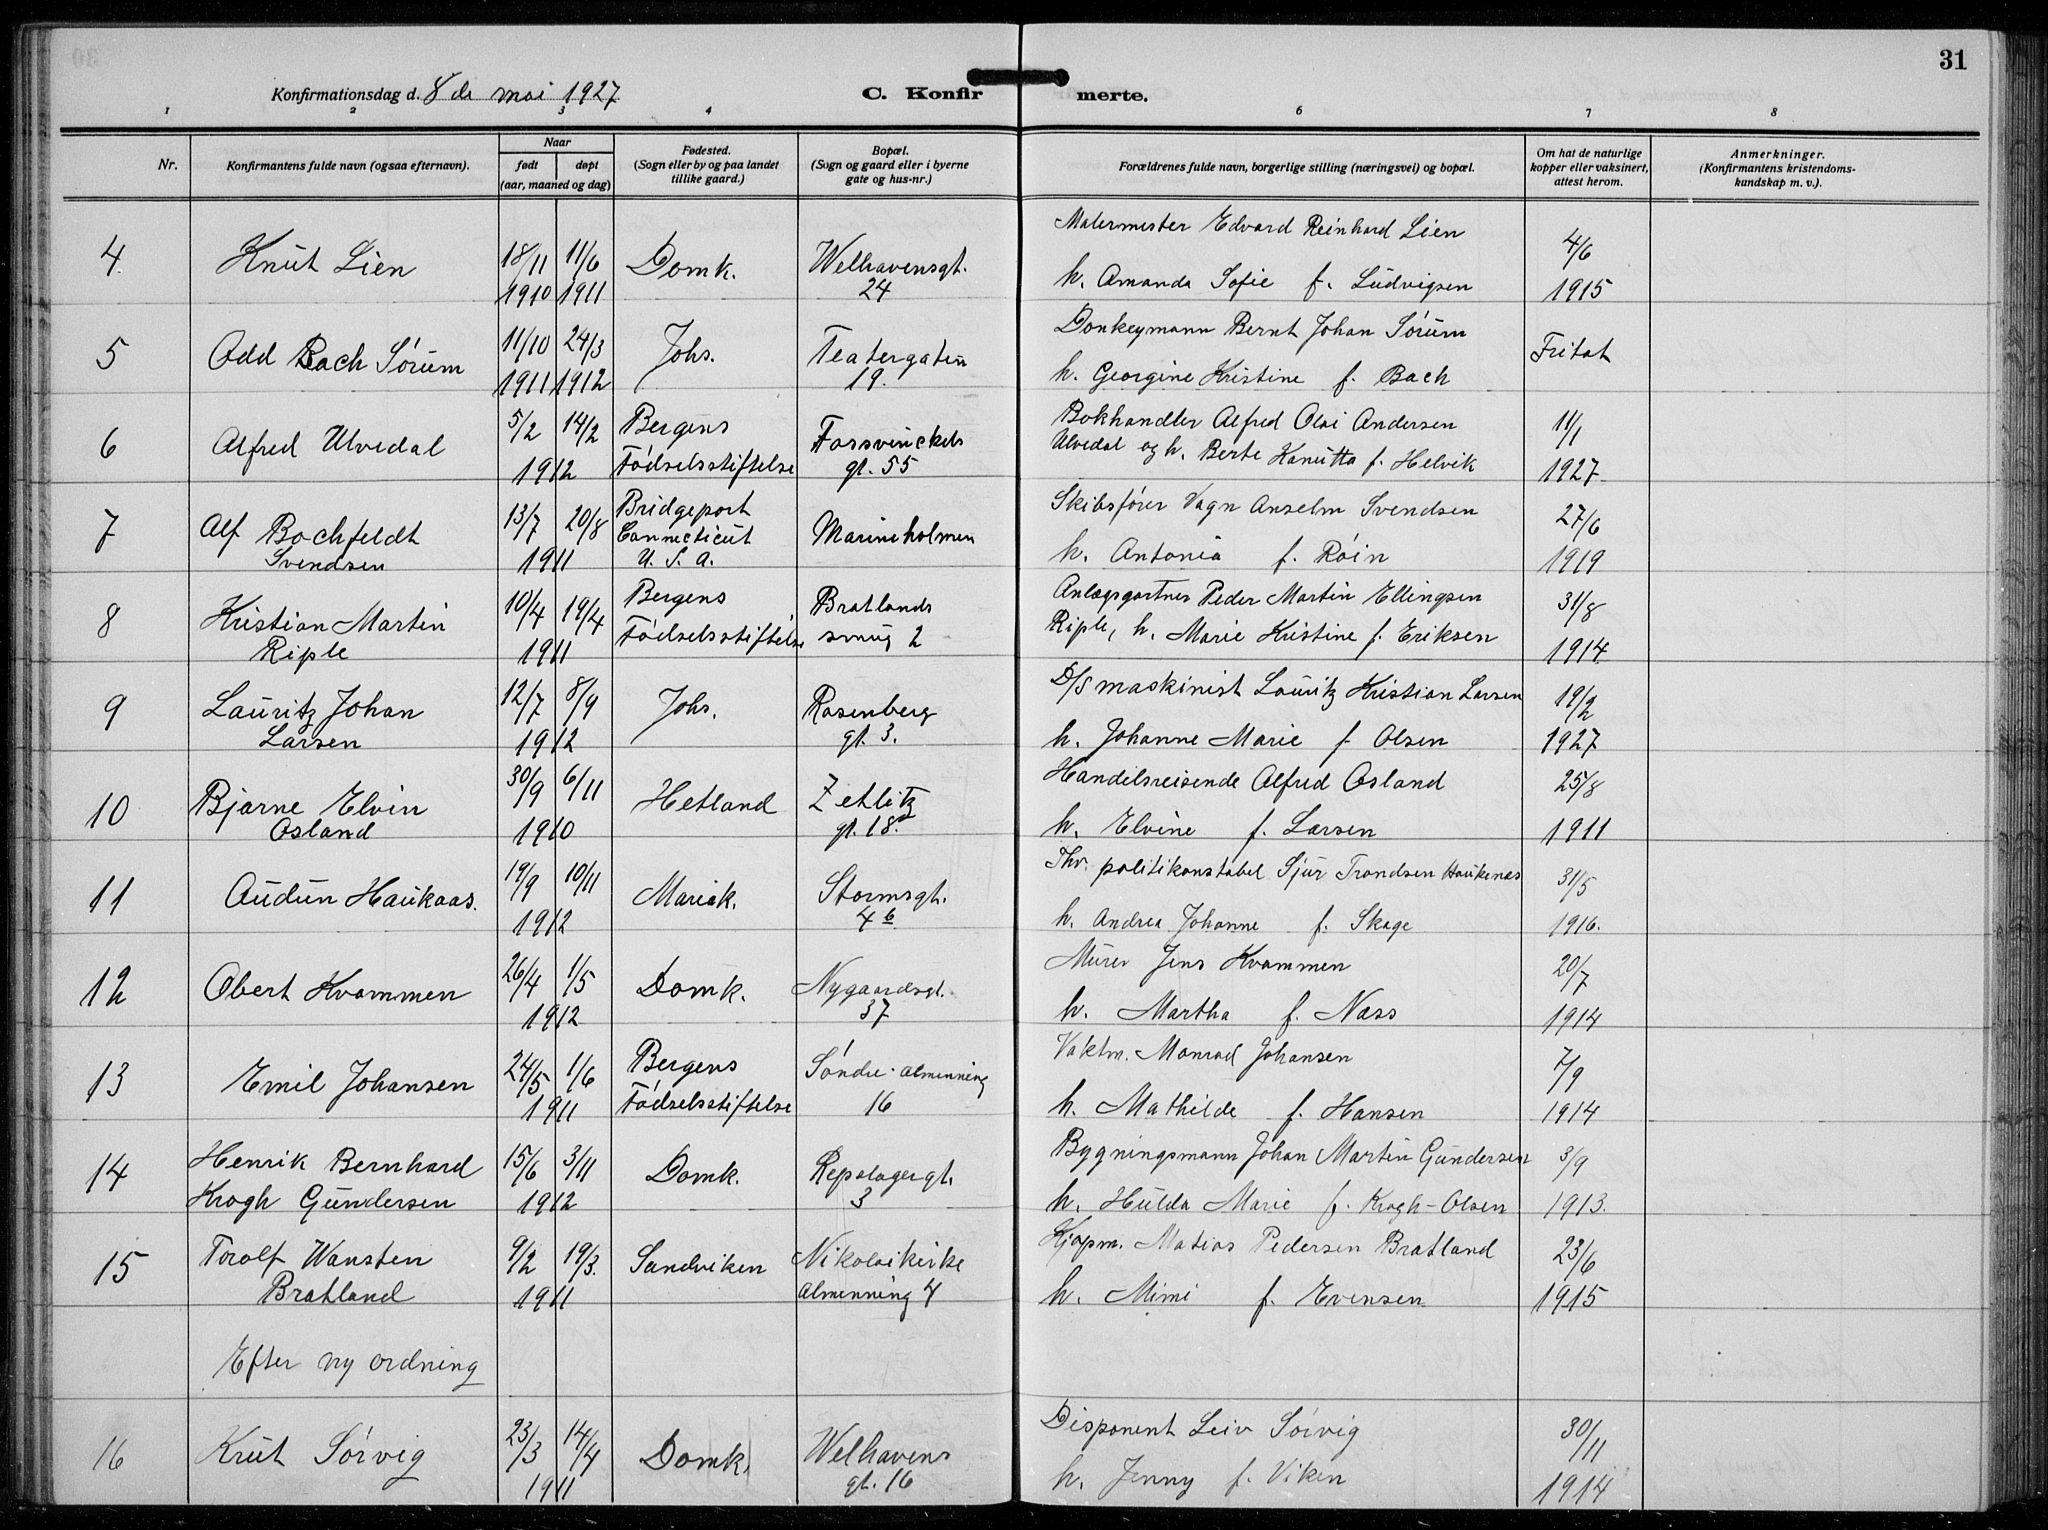 31
Konfirmationsdag d. 8 de mai 1927
C. Konfirmerte.
1 2 3 4 5 6 7 8
Nr.
Konfirmantens fulde navn (ogsaa efternavn).
Naar
født døpt
(aar, maaned og dag)
Fødested.
(Sogn eller by og paa landet
tillike gaard.)
Bopæl.
(Sogn og gaard eller i byerne
gate og hus-nr.)
Forældrenes fulde navn, borgerlige stilling (næringsvei) og bopæl.
Om hat de naturlige
kopper eller vaksinert,
attest herom.
Anmerkninger.
(Konfirmantens kristendoms-
kundskap m. v.).
4. Knut Lien 18/11 1910 11/6 1911 Domk. Welhavensgt. 24
Malermester Edvard Reinhard Lien
h. Amanda Sofie f. Ludvigsen
4/6 1915
5 Odd Bach Sórum 11/10 1911 24/3 1912 Johs. Teatergaten 19.
Donkeymann Bernt Johan Sórum
h. Georgine Kristine f. Bach
Fritat
6 Alfred Ulvedal 5/2 14/2 1912 Bergens Fódselsstiftelse Fossvinckels gt. 55
Bokhandler Alfred Olai Andersen
Ulvedal og h. Berte Kanutta f. Helvik
11/1 1927
7 Alf Bochfeldt Svendsen 13/7 20/8 1911 Bridgeport Connecticut U. S. A. Marineholmen
Skibsfórer Vagn Anselm Svendsen
h. Antonia f. Róin
27/6 1919
8 Kristian Martin Riple 10/4 19/4 1911 Bergens Fódselsstiftelse Bratlands smug 2
Anlægsgartner Peder Martin Ellingsen
Riple, h. Marie Kristine f. Eriksen
31/8 1914
9 Lauritz Johan Larsen 12/7 8/9 1912 Johs. Rosenberg gt. 3.
D/S maskinist Lauritz Kristian Larsen
h. Johanne Marie f. Olsen
19/2 1927
10 Bjarne Elvin Osland 30/9 6/11 1910 Hetland Zetlitz gt. 18.
Handelsreisende Alfred Osland
h. Elvine f. Larsen
25/8 1911
11 Audun Haukaas. 19/9 10/11 1912 Mariak. Stormsgt. 4 b
Fhv. politikonstabel Sjur Trondsen Haukenæs
h. Andrea Johanne f. Skage
31/5 1916.
12 Obert Kvammen 26/4 1/5 1912 Domk. Nygaardsgt. 37
Murer Jens Kvammen
h. Martha f. Næss
20/7 1914
13 Emil Johansen 24/5 1/6 1911 Bergens Fódselsstiftelse Sóndre almenning 16
Vaktm. Monrad Johansen
h. Mathilde f. Hansen
7/9 1914
14 Henrik Bernhard Krogh Gundersen 15/6 3/11 1912 Domk. Repslagergt. 3
Bygningsmann Johan Martin Gundersen
h. Hulda Marie f. Krogh-Olsen
3/9 1913.
15 Torolf Wansten Bratland 9/2 19/3. 1911 Sandviken Nikolaikirke almenning 4
Kjøpm. Matias Pedersen Bratland
h. Mimi f. Evensen
23/6 1915
Efter ny ordning
16 Knut Sórvig 23/3 14/4 1911 Domk. Welhavens gt. 16
Disponent Leiv Sórvig
h. Jenny f. Viken
30/11 1914